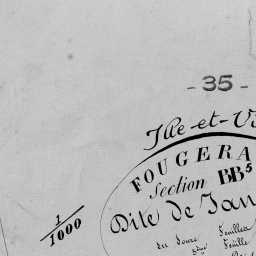 - 35 -
Ille-et-Vi
FOUGERA
Section BB5
Dite de Jan
1/1000
Feuilles
Feuille